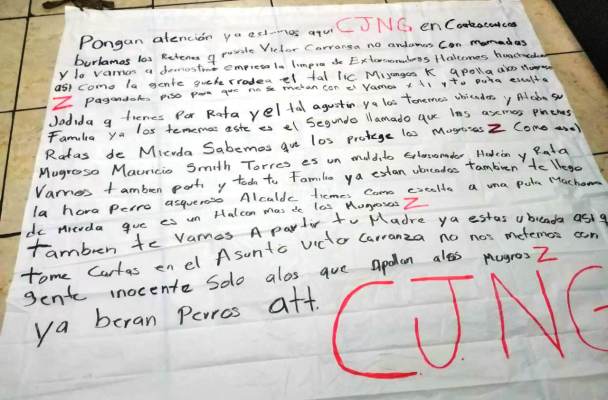 Pongan atención ya estamos aquí CJNG en Coatzacoalcos
burlamos los Retenes q puso Victor Carranza no andamos con mamadas
y lo vamos a demostrar empieza la limpia de Extorsionadores Halcones
asi como la gente que te rrodea el tal lic Mijangos K apolla alos mugrosos
Z pagandoles piso para que no se metan con el Vamos x ti y tu puta escolta
Jodida q tienes por Rata y el tal agustin ya los tenemos ubicados y Atoda su
Familia ya los tenemos este es el Segundo llamado que les asemos pinches
Ratas de Mierda Sabemos que los protege los Mugrosos Z Como es el
Mugroso Mauricio Smith Torres es un maldito Extorsionador Halcón y Rata
Vamos tambien por ti y toda tu Familia ya estan ubicados tambien te llego
la hora Perro asqueroso Alcalde tienes como escolta a una puta Machorra
de Mierda que es un Halcon mas de los Mugrosos Z
tambien te Vamos A partir tu Madre ya estas ubicada asi q
tome Cartas en el Asunto Victor Carranza no nos metemos con
gente inocente Solo alos que Apollan alos Mugros Z
ya beran Perros att.
C.J.NG